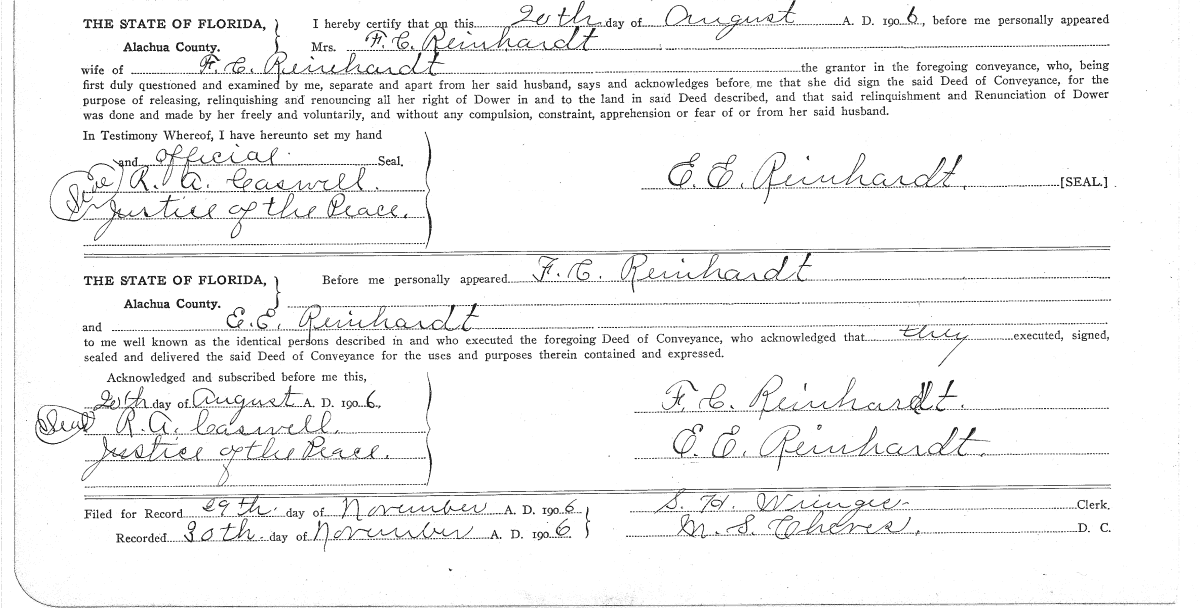 THE STATE OF FLORIDA, I hereby certify that on this 20th day of August A. D. 1906, before me personally appeared
Alachua County. Mrs. F. C. Reinhardt
wife of F. C. Reinhardt the grantor in the foregoing conveyance, who, being
first duly questioned and examined by me, separate and apart from her said husband, says and acknowledges before me that she did sign the said Deed of Conveyance, for the
purpose of releasing, relinquishing and renouncing all her right of Dower in and to the land in said Deed described, and that said relinquishment and Renunciation of Dower
was done and made by her freely and voluntarily, and without any compulsion, constraint, apprehension or fear of or from her said husband.
In Testimony Whereof, I have hereunto set my hand
and official Seal.
Seal R. A. Caswell.
E. E. Reinhardt. [SEAL.]
Justice of the Peace.
THE STATE OF FLORIDA, Before me personally appeared F. C. Reinhardt
Alachua County.
and E. E. Reinhardt
to me well known as the identical persons described in and who executed the foregoing Deed of Conveyance, who acknowledged that they executed, signed,
sealed and delivered the said Deed of Conveyance for the uses and purposes therein contained and expressed.
Acknowledged and subscribed before me this,
20th day of August A. D. 1906.
F. C. Reinhardt.
Seal R. A. Caswell.
Justice of the Peace.
E. E. Reinhardt.
Filed for Record 29th day of November A. D. 1906 S. H. Clerk.
Recorded 30th day of November A. D. 1906. M. S. Cheves. D. C.